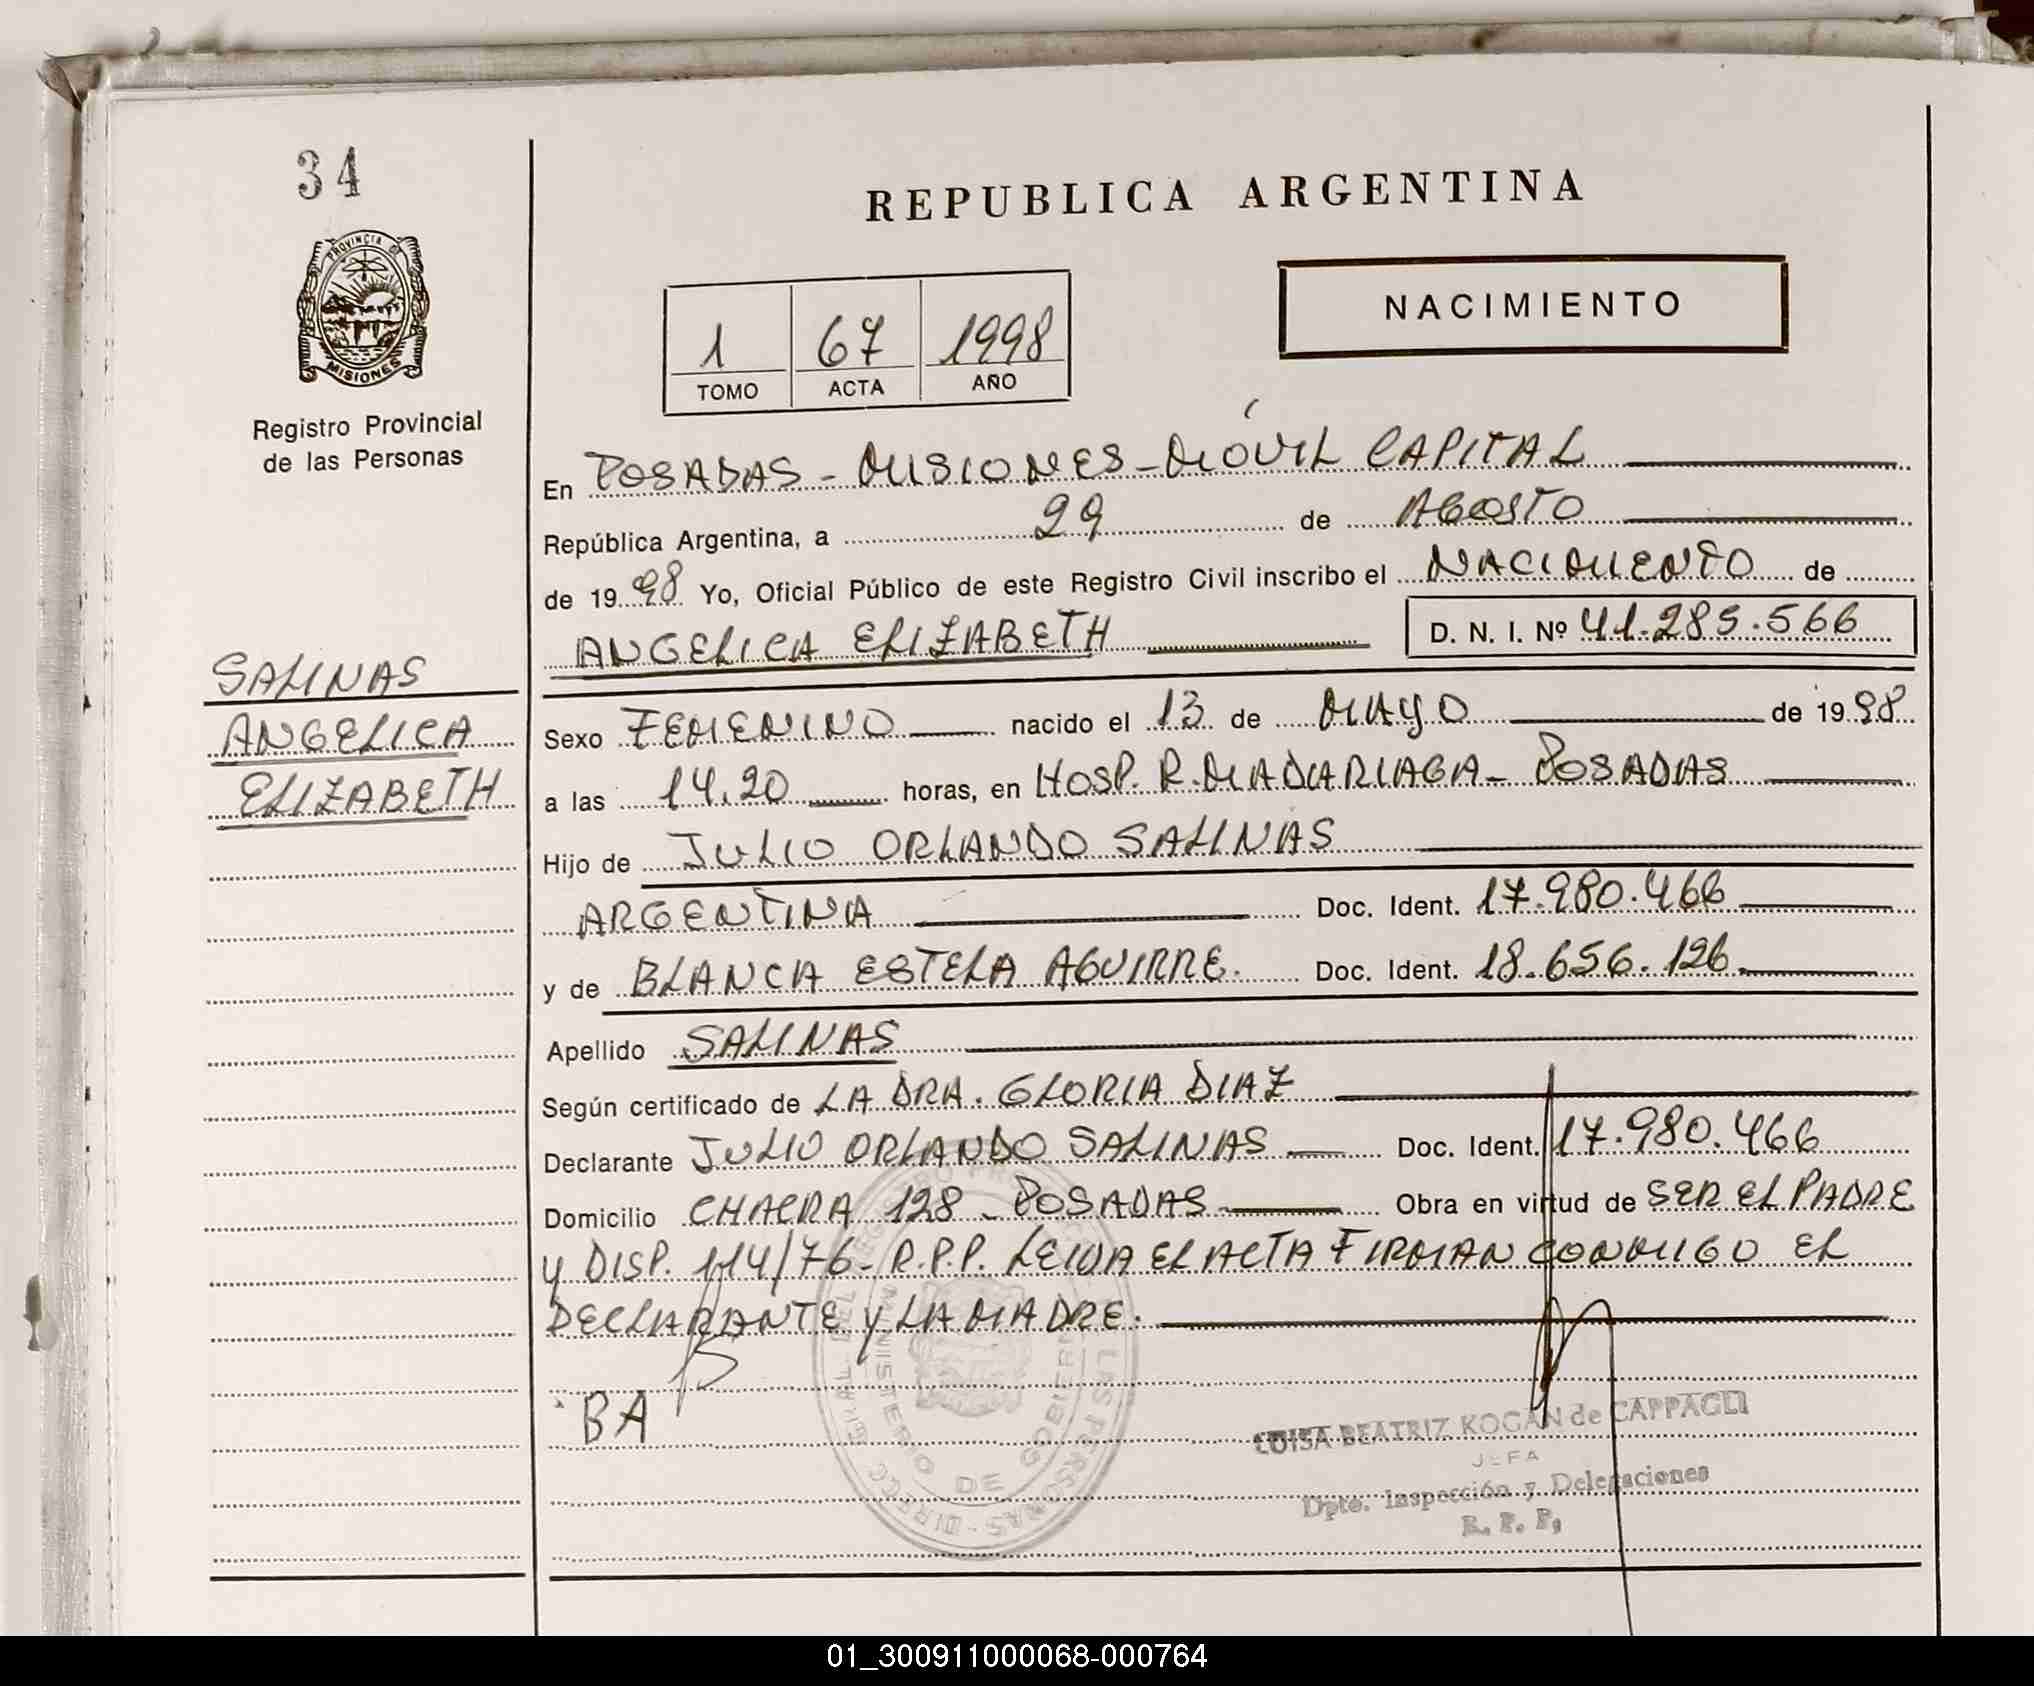 34
REPUBLICA ARGENTINA
PROVINCIA DE
MISIONES
NACIMIENTO
1 67 1998
TOMO ACTA AÑO
Registro Provincial
de las Personas
En POSADAS - MISIONES - MÓVIL CAPITAL
República Argentina, a 29 de AGOSTO
de 1998 Yo, Oficial Público de este Registro Civil inscribo el NACIMIENTO de
ANGELICA ELIZABETH D. N. I. Nº 41.285.566
SALINAS
ANGELICA
ELIZABETH
Sexo FEMENINO nacido el 13 de MAYO de 1998
a las 14.20 horas, en HOSP. R. MADARIAGA - POSADAS
Hijo de JULIO ORLANDO SALINAS
ARGENTINA Doc. Ident. 17.980.466
y de BLANCA ESTELA AGUIRRE. Doc. Ident. 18.656.126
Apellido SALINAS
Según certificado de LA DRA. GLORIA DIAZ
Declarante JULIO ORLANDO SALINAS Doc. Ident. 17.980.466
Domicilio CHACRA 128 - POSADAS Obra en virtud de SER EL PADRE
y DISP. 114/76 - R.P.P. LEIDA EL ACTA FIRMAN CONMIGO EL
DECLARANTE y LA MADRE.
BA
LUISA BEATRIZ KOGAN de CAPPAGLI
JEFA
Dpto. Inspección y Delegaciones
R. P. P.
MINISTERIO DE GOBIERNO
01_300911000068-000764